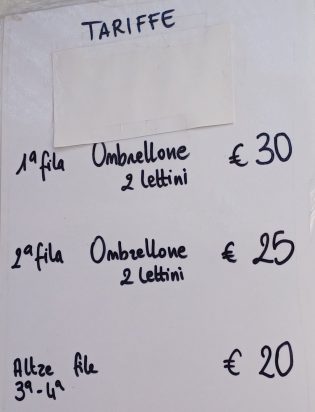 TARIFFE
1ª fila Ombrellone € 30
2 lettini
2ª fila Ombrellone € 25
2 lettini
Altre file € 20
3ª-4ª